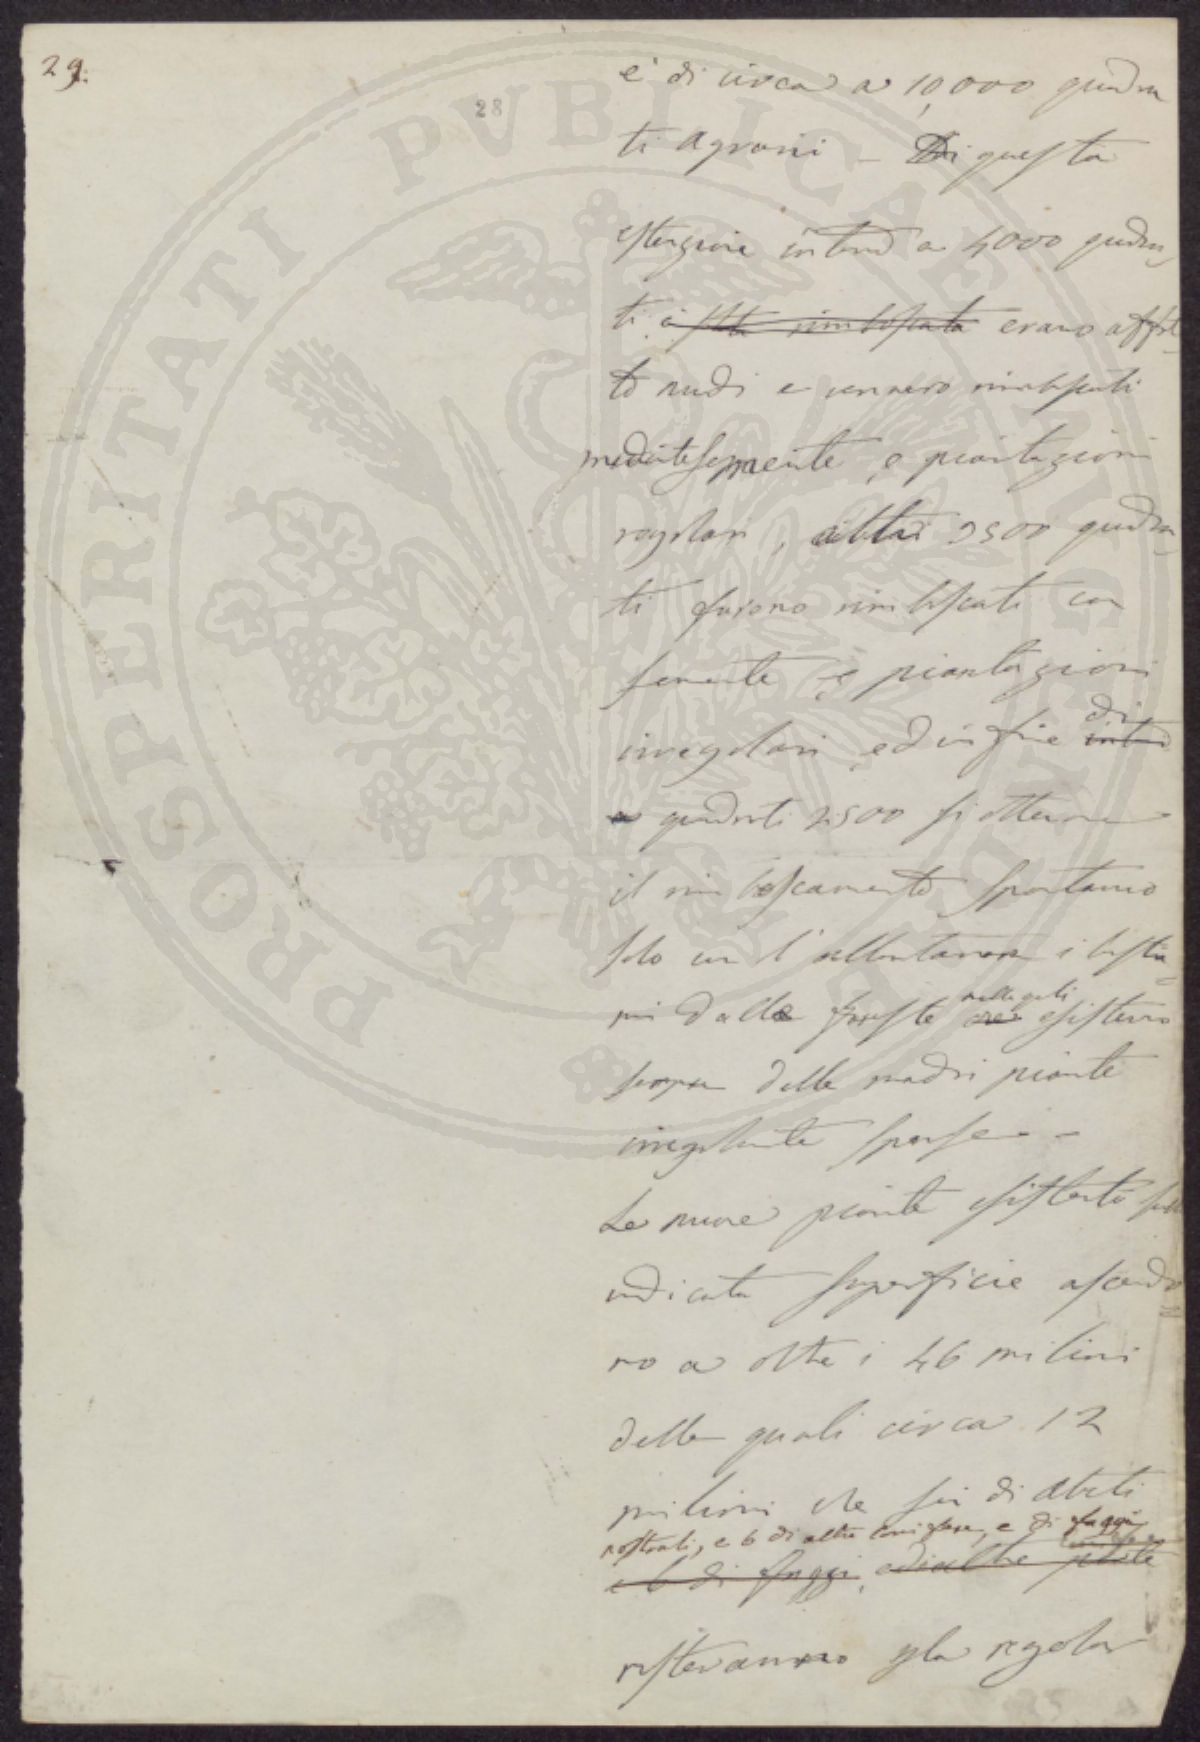 29.
28
PROSPERITATI PVBLICAE
è di circa a 10,000 quadra
ti agrari – Di questa
estenzione intorno a 4000 quadra
ti è stata rimboscata erano affat
to nudi e vennero rimboscati
mediante semente e piantagioni
regolari, altri 3500 quadra
ti furono rimboscati con
semente e piantagioni
irregolari, ed infine di
a quadrati 2500 si ottenne
il rimboscamento spontaneo
solo con l'allontanare i bestia
mi dalle foreste nelle quali esistevano
sempre delle madri piante
irregolarmente sparse –
Le nuove piante esistenti sulla
indicata superficie ascendo
no a oltre i 46 milioni
delle quali circa 12
milioni che sei di abeti
nostrali, e 6 di altre conifere, e di faggi
e 6 di faggi, e di altre piante
resteranno per la regolar